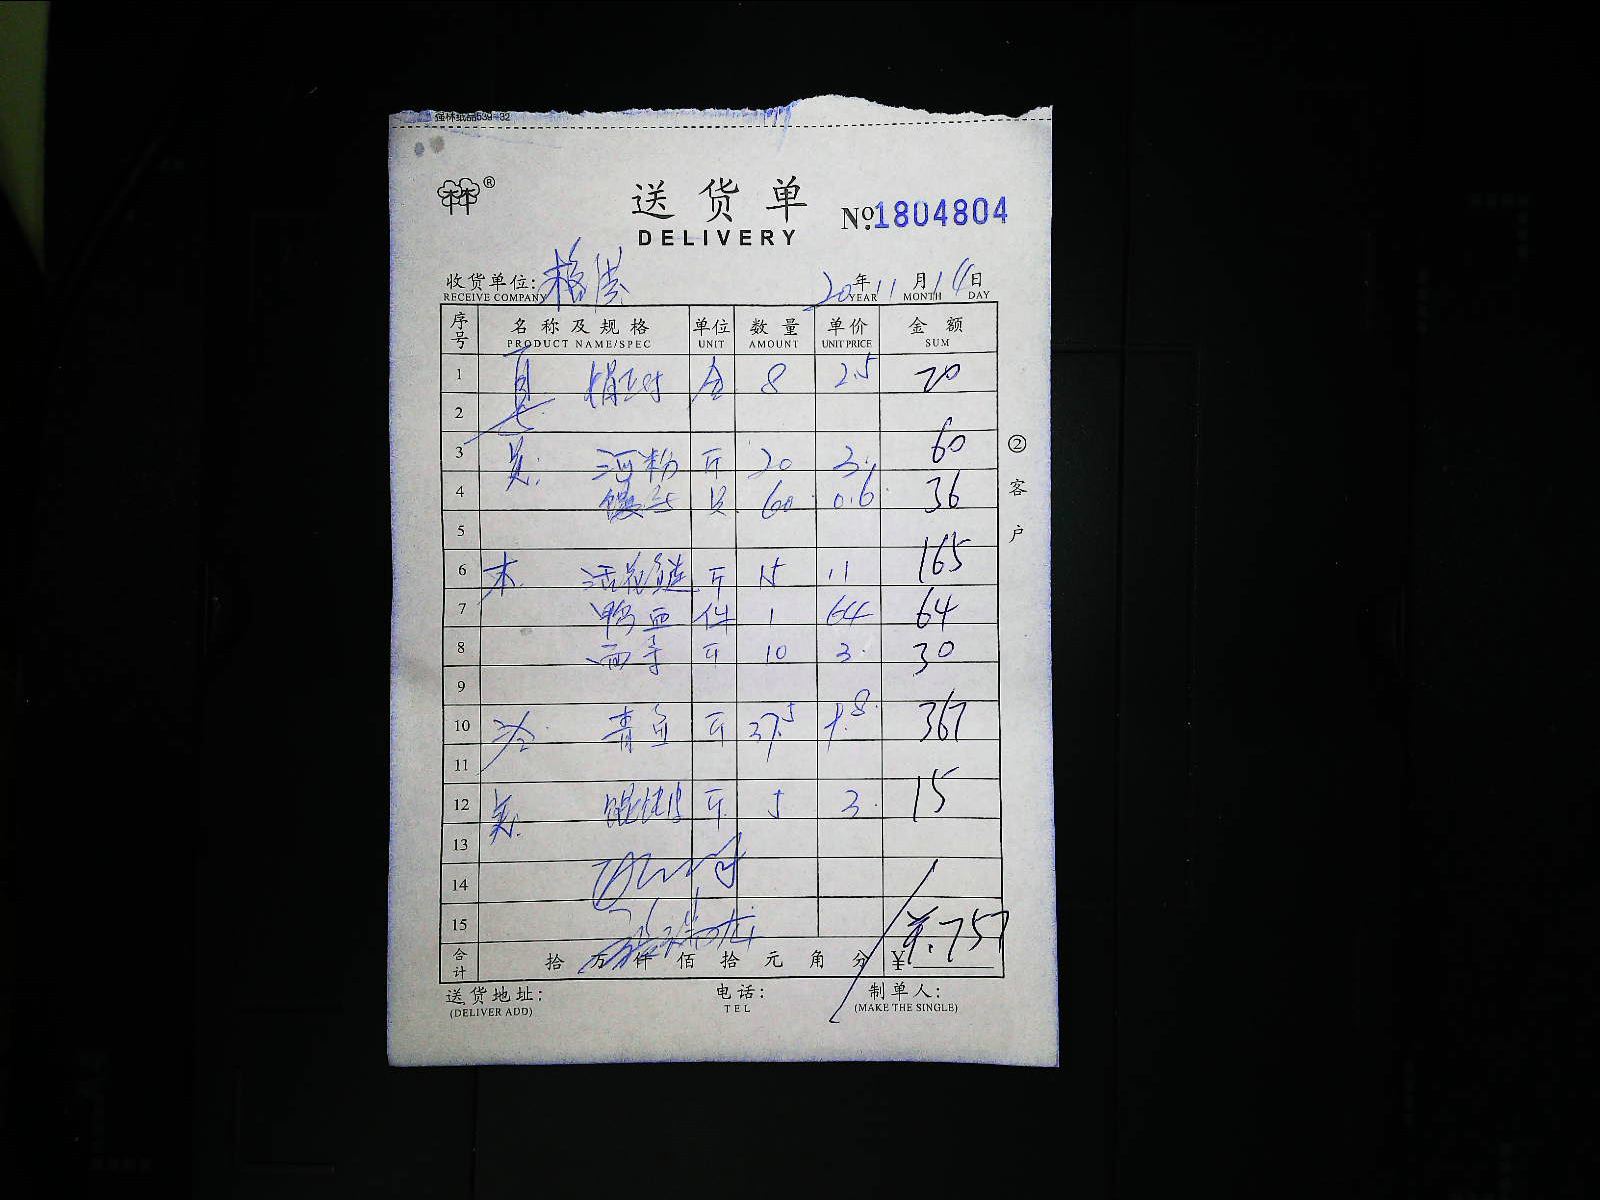 强林纸品539-32
林®
送货单 №1804804
DELIVERY
收货单位: 格 20年11月14日
RECEIVE COMPANY YEAR MONTH DAY
序号 名称及规格 单位 数量 单价 金额
PRODUCT NAME/SPEC UNIT AMOUNT UNIT PRICE SUM
1 8 2.5 20
2
3 河粉 斤 20 3. 60
4 馒头 只 60 0.6 36
5
6 活花鲢 斤 15 11 165
7 鸭血 件 1 64 64
8 西芋 斤 10 3. 30
9
10 青鱼 斤 37.5 9.8 367
11
12 馄饨皮 斤 5 3. 15
13
14
15
合计 拾万仟佰拾元角分 ¥ ¥.757
送货地址: 电话: 制单人:
(DELIVER ADD) TEL (MAKE THE SINGLE)
②客户